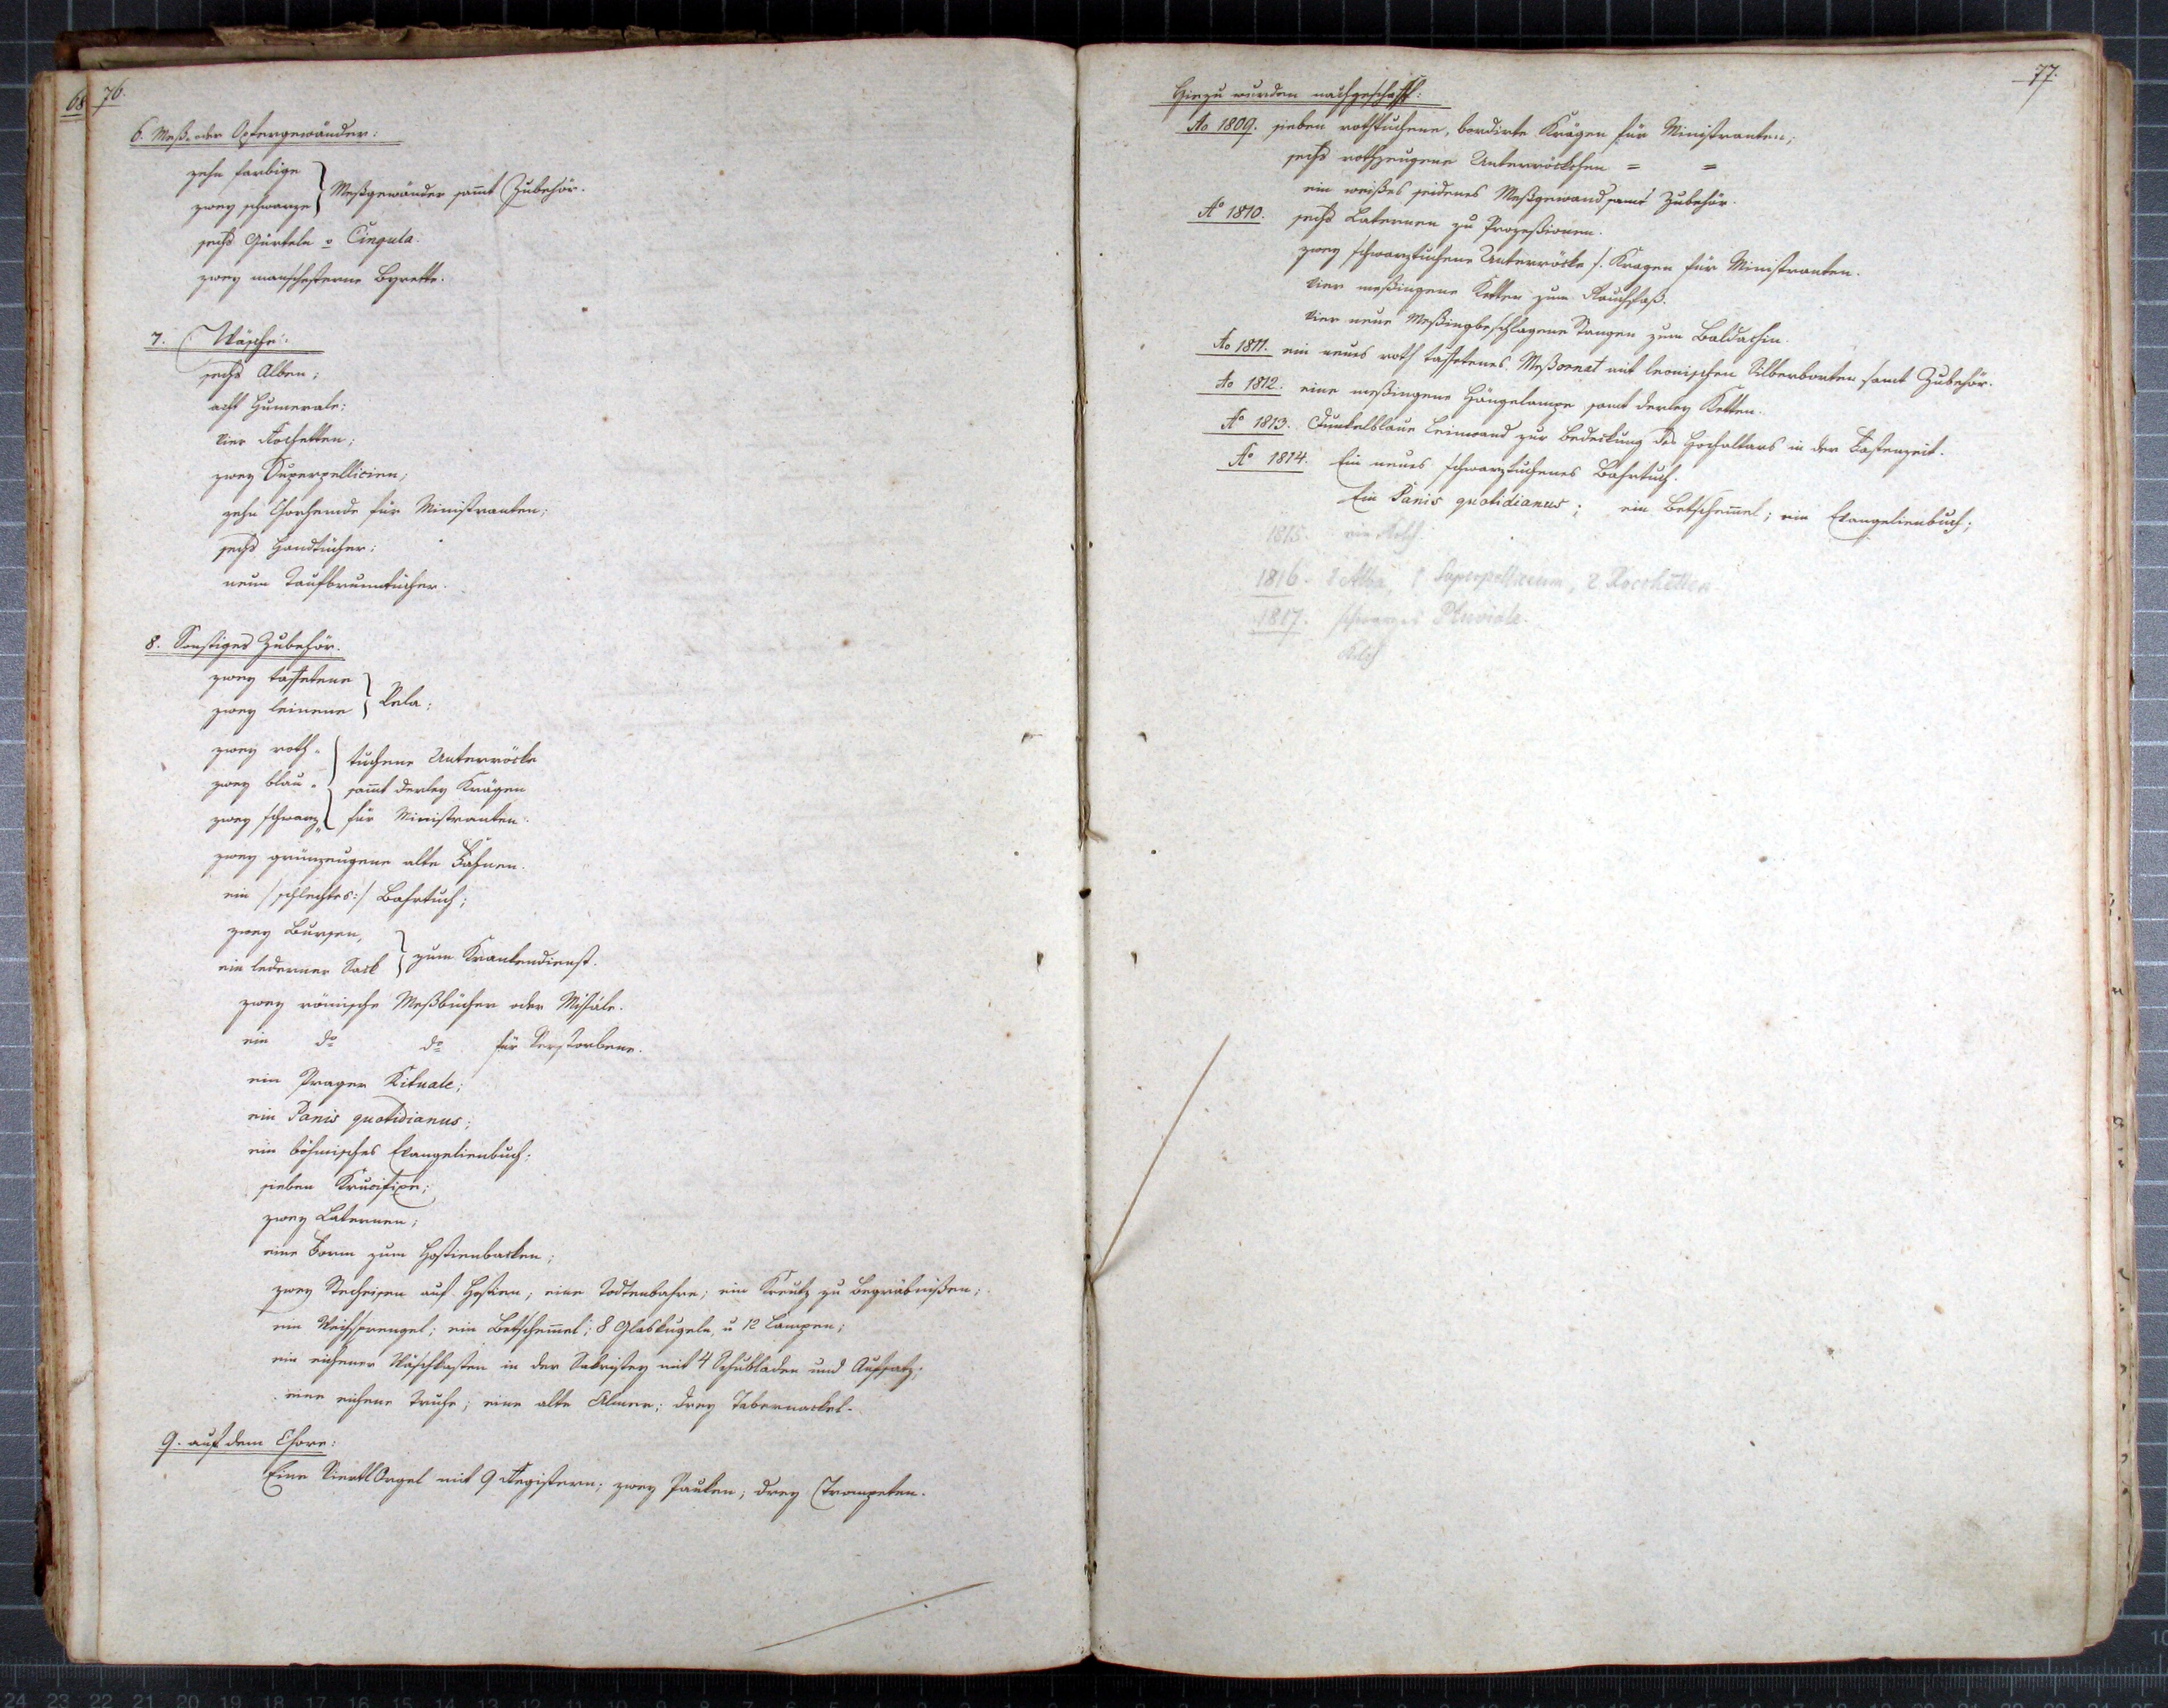 68
76.
6. Meß- oder Opfergewänder:
zehn farbige
zwey schwarze } Meßgewänder sam̄t Zubehör.
sechs Gürteln o Cingula.
zwey manschesterne Byrette.
7. Wäsche:
sechs Alben;
acht Humerale;
vier Rochetten;
zwey Superpellicien;
zehn Chorhemde für Ministranten;
sechs Handtücher;
neun Taufbrunntücher.
8. Sonstiges Zubehör.
zwey taffetene
zwey leinene } Vela;
zwey roth-
zwey blau-
zwey schwarz- } tuchene Unterröcke
sam̄t derley Krägen
für Ministranten.
zwey grünzeugene alte Fahnen.
ein /schlechtes:/ Bahrtuch;
zwey Bursen,
ein lederner Sack } zum Krankendienst.
zwey römische Meßbücher oder Missale.
ein do do für Verstorbene.
ein Prager Rituale;
ein Panis quotidianus;
ein böhmisches Evangelienbuch;
sieben Krucifixe;
zwey Laternen;
eine Form zum Hostienbacken;
zwey Stecheisen auf Hostien; eine Todtenbahre; ein Kreutz zu Begräbnißen;
ein Weihsprengel; ein Betschem̄el; 8 Glaskugeln, u 12 Lampen;
ein eichener Wäschkasten in der Sakristey mit 4 Schubladen und Aufsatz;
eine eichene Truhe; eine alte Almer; drey Tabernackel.
9. auf dem Chore:
Eine Viertl Orgel mit 9 Registern; zwey Pauken; drey Trompeten.
77.
Hiezu wurden nachgeschafft:
Ao 1809. sieben rothtuchene, bordirte Krägen für Ministranten;
sechs rothzeugene Unterröckchen = =
ein weißes seidenes Meßgewand samt Zubehör.
Ao 1810. sechs Laternen zu Prozeßionen.
zwey schwarztuchene Unterröcke s. Kragen für Ministranten.
vier meßingene Ketten zum Rauchfaß.
vier neue Meßingbeschlagene Stangen zum Baldachin.
Ao 1811. ein neues roth taffetenes Meßornat mit leonischen Silberborten samt Zubehör.
Ao 1812. eine meßingene Hängelampe samt derley Ketten.
Ao 1813. Dunkelblaue Leinwand zur Bedeckung des Hochaltars in der Fastenzeit.
Ao 1814. Ein neues schwarztuchenes Bahrtuch.
Ein Panis quotidianus; ein Betschem̄el; ein Evangelienbuch;
1815. ein Kelch.
1816. 1 Alba, 1 Superpellicium, 2 Rocchetten
1817. schwarzes Pluviale.
Kelch